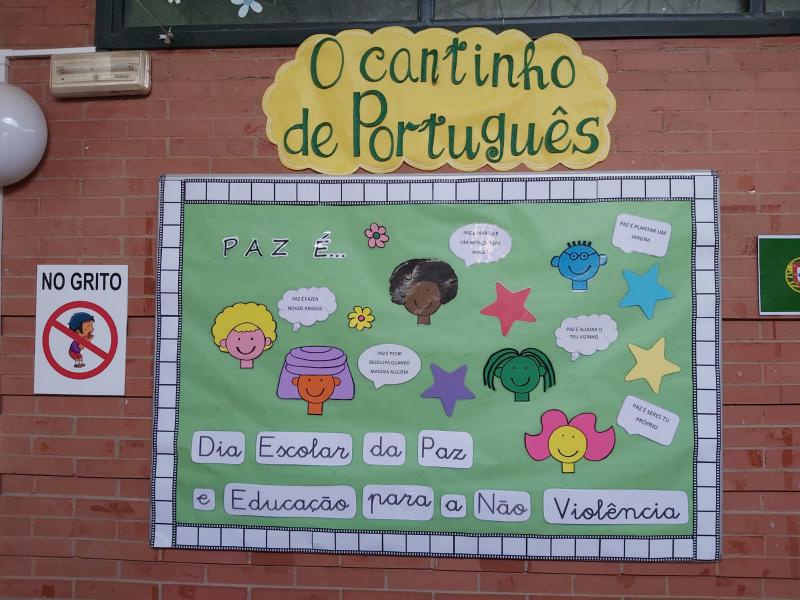 O cantinho
de Português
NO GRITO
PAZ É...
PAZ É OFERECER
UM ABRAÇO A UM
AMIGO
PAZ É PLANTAR UM
JARDIM
PAZ É FAZER
NOVOS AMIGOS
PAZ É PEDIR
DESCULPA QUANDO
MAGOAS ALGUÉM
PAZ É AJUDAR O
TEU VIZINHO
PAZ É SERES TU
PRÓPRIO
Dia Escolar da Paz
e Educação para a Não Violência